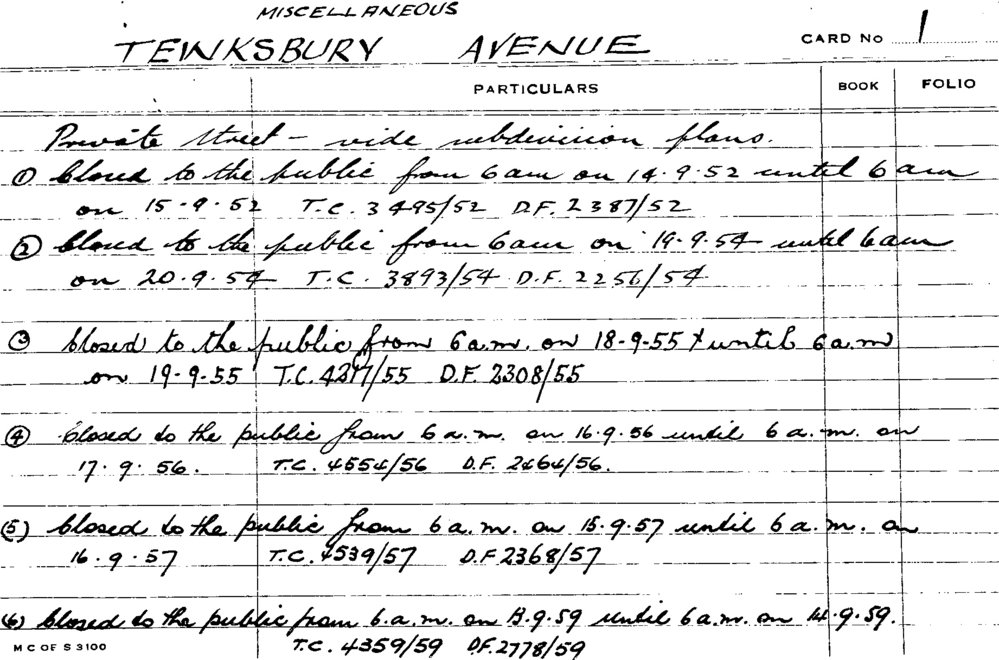 MISCELLANEOUS
TEWKSBURY AVENUE CARD No 1
PARTICULARS BOOK FOLIO
Private Street – vide subdivision plans.
① Closed to the public from 6am on 14.9.52 until 6am
on 15.9.52 T.C. 3495/52 D.F. 2387/52
② Closed to the public from 6am on 19.9.54 until 6am
on 20.9.54 T.C. 3893/54 D.F. 2256/54
③ Closed to the public from 6a.m. on 18-9-55 & until 6a.m
on 19-9-55 T.C. 4217/55 D.F. 2308/55
④ Closed to the public from 6 a.m. on 16.9.56 until 6 a.m. on
17.9.56. T.C. 4554/56 D.F. 2464/56.
(5) Closed to the public from 6 a.m. on 15.9.57 until 6 a.m. on
16.9.57 T.C. 4539/57 D.F. 2368/57
(6) Closed to the public from 6.a.m. on 13.9.59 until 6 a.m. on 14.9.59.
M C OF S 3100 T.C. 4359/59 D.F. 2778/59